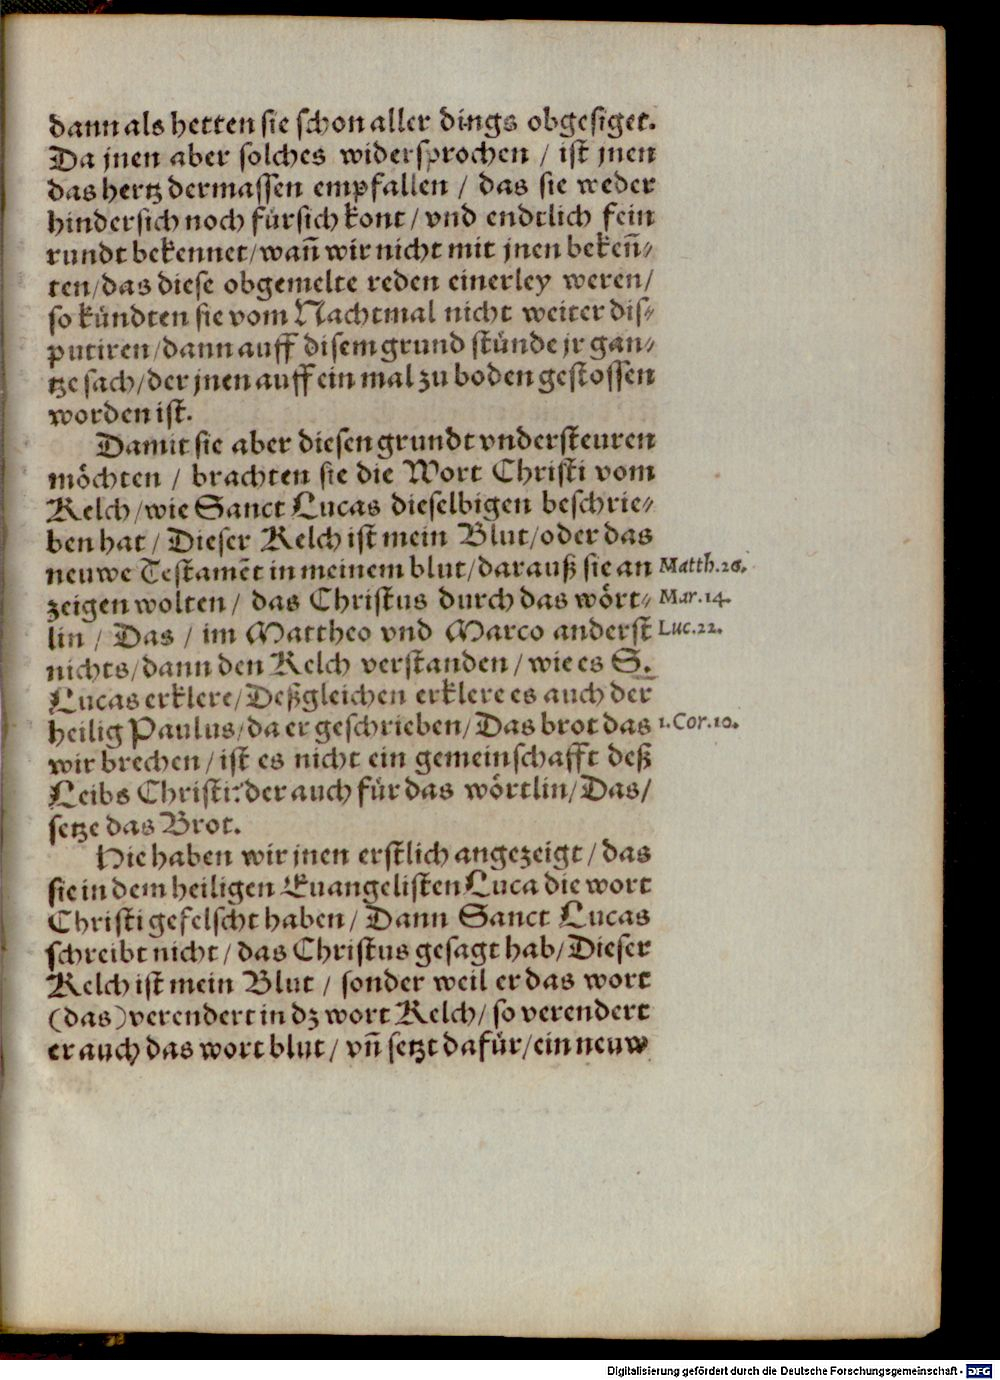 dann als hetten sie schon aller dings obgesiget.
Da jnen aber solches widersprochen / ist jnen
das hertz dermassen empfallen / das sie weder
hindersich noch fürsich kont / vnd endtlich fein
rundt bekennet / wañ wir nicht mit jnen bekeñ-
ten / das diese obgemelte reden einerley weren /
so kündten sie vom Nachtmal nicht weiter dis-
putiren / dann auff disem grund stünde jr gan-
tze sach / der jnen auff ein mal zu boden gestossen
worden ist.
Damit sie aber diesen grundt vndersteuren
möchten / brachten sie die Wort Christi vom
Kelch / wie Sanct Lucas dieselbigen beschrie-
ben hat / Dieser Kelch ist mein Blut / oder das
neuwe Testamēt in meinem blut / darauß sie an Matth.26.
zeigen wolten / das Christus durch das wört- Mar.14.
lin / Das / im Mattheo vnd Marco anderst Luc.22.
nichts / dann den Kelch verstanden / wie es S.
Lucas erklere / Deßgleichen erklere es auch der
heilig Paulus / da er geschrieben / Das brot das 1.Cor.10.
wir brechen / ist es nicht ein gemeinschafft deß
Leibs Christi: der auch für das wörtlin / Das /
setze das Brot.
Hie haben wir jnen erstlich angezeigt / das
sie in dem heiligen Euangelisten Luca die wort
Christi gefelscht haben / Dann Sanct Lucas
schreibt nicht / das Christus gesagt hab / Dieser
Kelch ist mein Blut / sonder weil er das wort
(das) verendert in dz wort Kelch / so verendert
er auch das wort blut / vñ setzt dafür / ein neuw
Digitalisierung gefördert durch die Deutsche Forschungsgemeinschaft - DFG